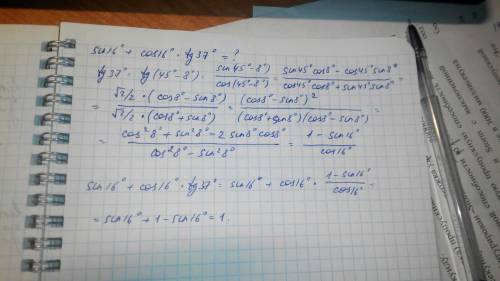 sin16° + cos16° · tg37° = ?
tg37° = tg(45°-8°) = sin(45°-8°)/cos(45°-8°) = (sin45°cos8° - cos45°sin8°)/(cos45°cos8° + sin45°sin8°) =
= (√2/2 · (cos8° - sin8°))/(√2/2 · (cos8° + sin8°)) = (cos8° - sin8°)²/((cos8° + sin8°)(cos8° - sin8°)) =
= (cos²8° + sin²8° - 2 sin8° cos8°)/(cos²8° - sin²8°) = (1 - sin16°)/cos16°
sin16° + cos16° · tg37° = sin16° + cos16° · (1 - sin16°)/cos16° =
= sin16° + 1 - sin16° = 1.